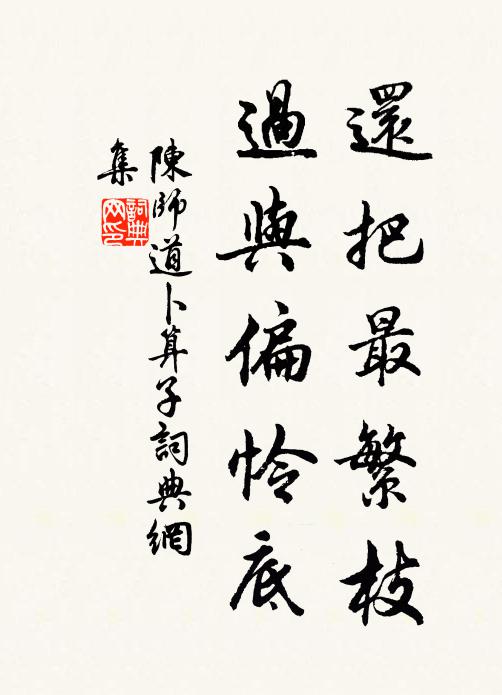 還把最繁枝
過與偏怜底
陳師道卜算子詞典網
集
詞典网印